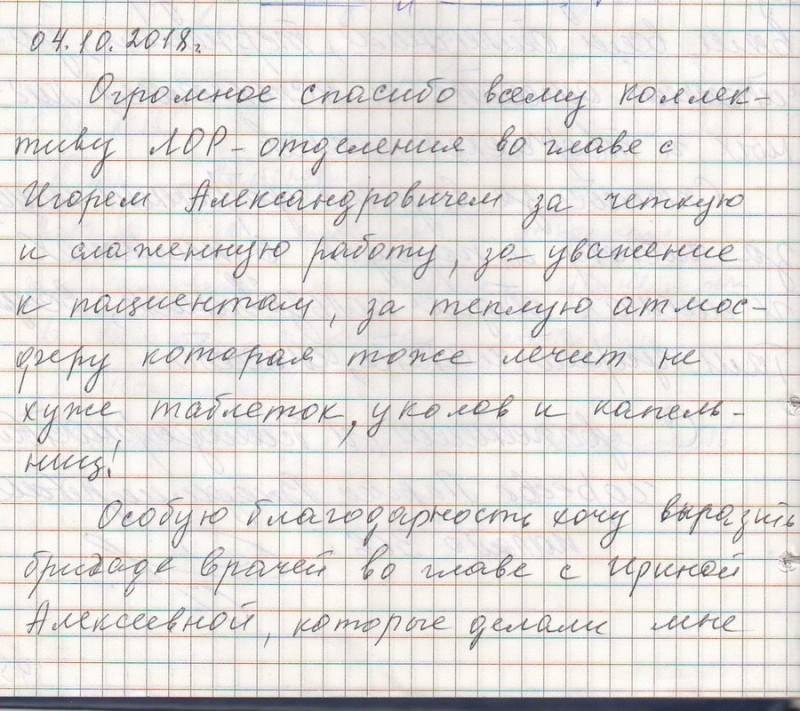 04.10.2018г.
Огромное спасибо всему коллек-
тиву ЛОР-отделения во главе с
Игорем Александровичем за четкую
и слаженную работу, за уважение
к пациентам, за теплую атмос-
феру которая тоже лечит не
хуже таблеток, уколов и капель-
ниц!
Особую благодарность хочу выразить
бригаде врачей во главе с Ириной
Алексеевной, которые делали мне